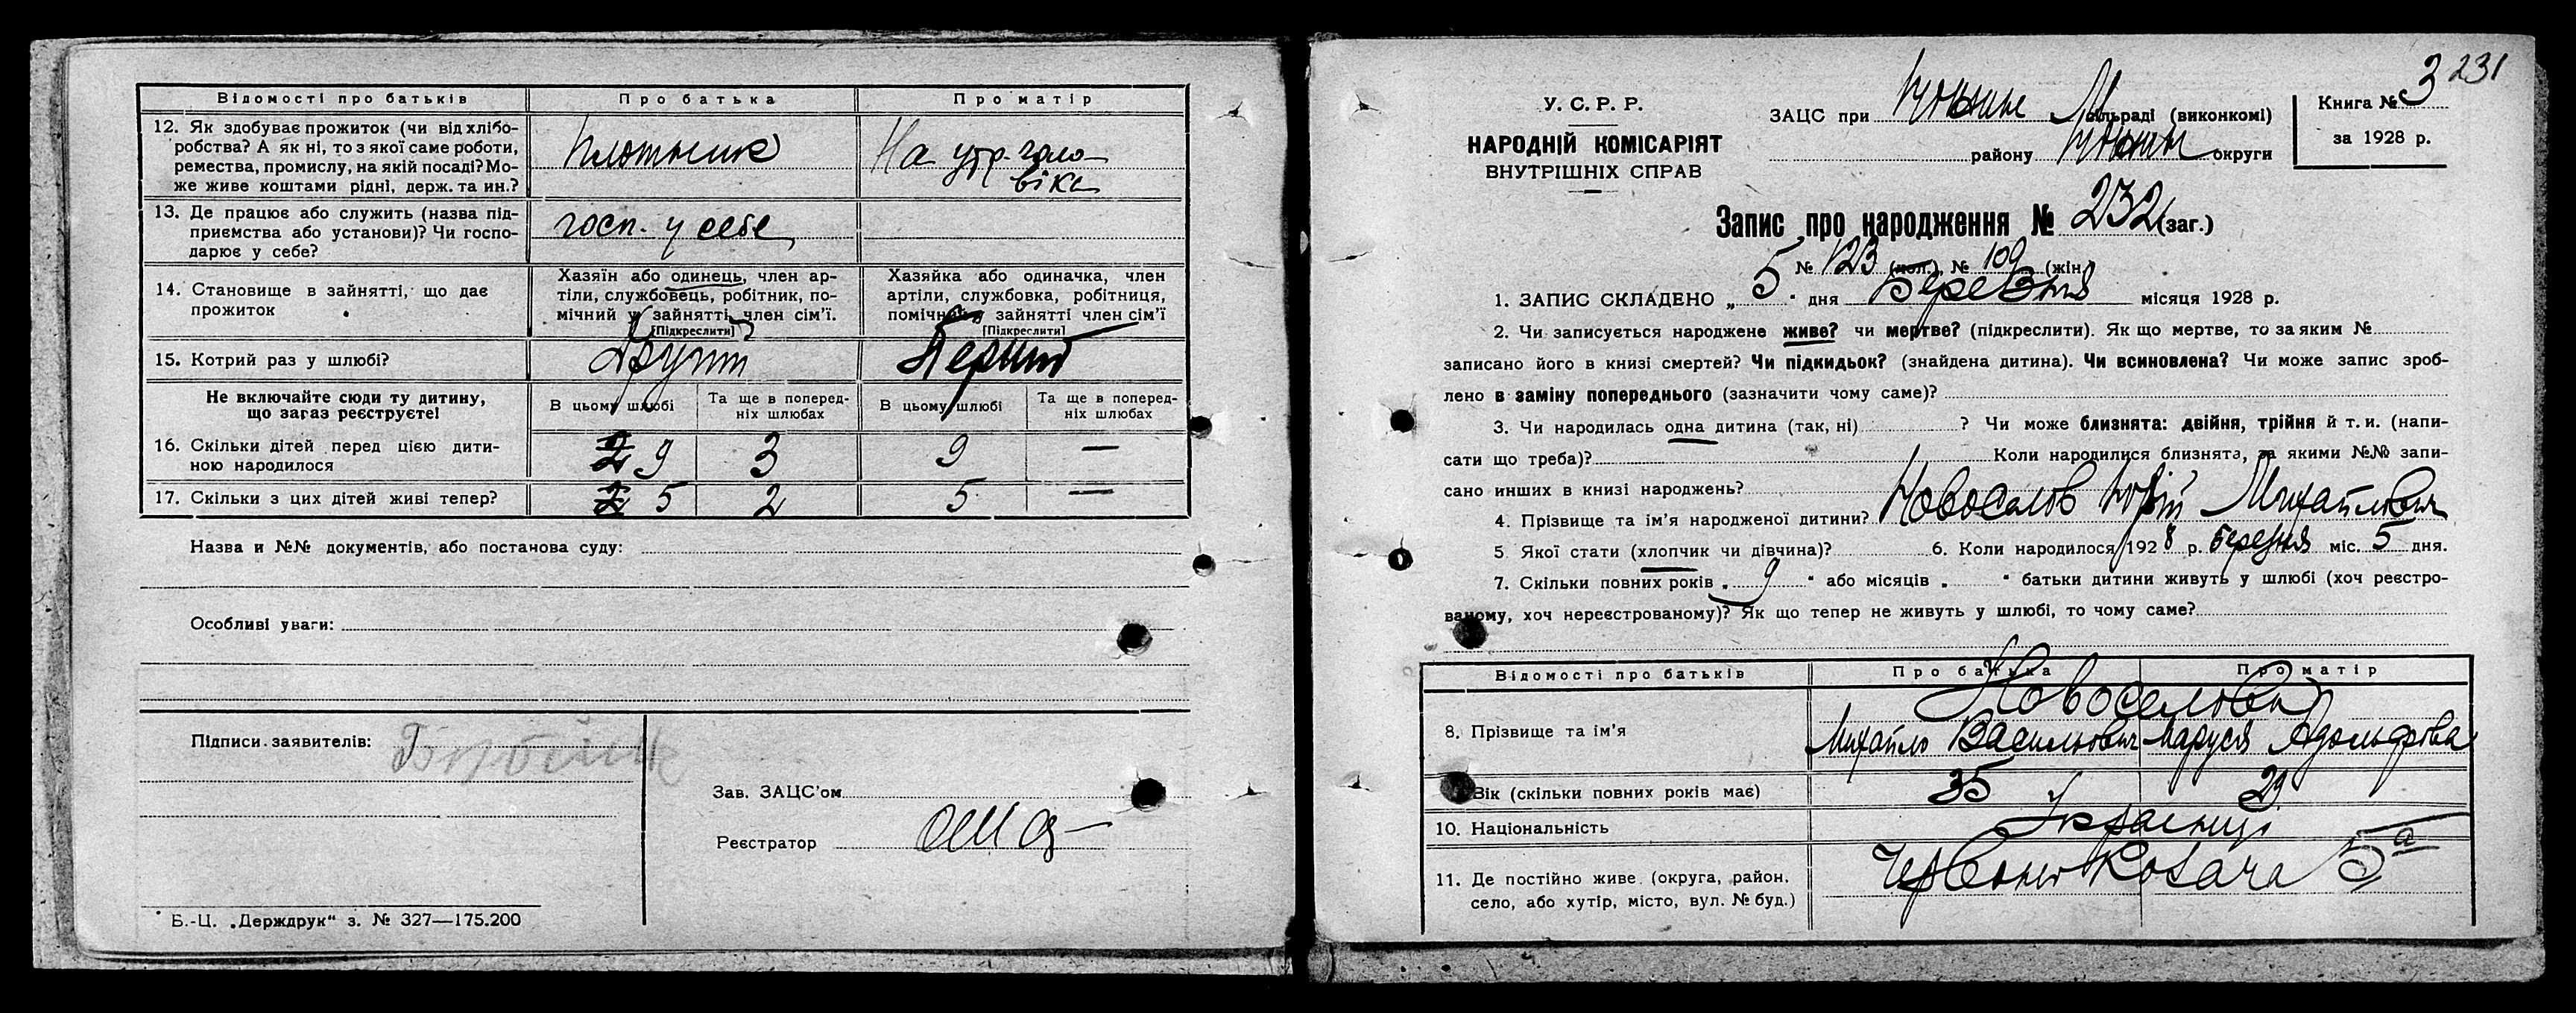 Відомості про батьків
Про батька
Про матір
12. Як здобуває прожиток (чи від хлібо-
робства? А як ні, то з якої саме роботи,
ремества, промислу, на якій посаді? Мо-
же живе коштами рідні, держ. та ин.?
Плотник
На утр. чоло-
віка
13. Де працює або служить (назва під-
приємства або установи)? Чи госпо-
дарює у себе?
госп. у себе
14. Становище в зайнятті, що дає
прожиток
Хазяїн або одинець, член ар-
тіли, службовець, робітник, по-
мічний у зайнятті член сім'ї.
[Підкреслити]
Хазяйка або одиначка, член
артіли, службовка, робітниця,
помічна у зайнятті член сім'ї
[Підкреслити]
15. Котрий раз у шлюбі?
Другий
Перший
Не включайте сюди ту дитину,
що загаз реєструєте!
В цьому шлюбі
Та ще в поперед-
ніх шлюбах
В цьому шлюбі
Та ще в поперед-
ніх шлюбах
16. Скільки дітей перед цією дити-
ною народилося
2 9 3 9 —
17. Скільки з цих дітей живі тепер?
2 5 2 5 —
Назва и №№ документів, або постанова суду:
Особливі уваги:
Підписи заявителів:
Зав. ЗАЦС'ом
Реєстратор
Б.-Ц. „Держдрук“ з. № 327—175.200
3 231
У. С. Р. Р.
НАРОДНІЙ КОМІСАРІЯТ
ВНУТРІШНІХ СПРАВ
ЗАЦС при сільраді (виконкомі)
району округи
Книга №
за 1928 р.
Запис про народження № 232 (заг.)
№ 123 (чол.), № 109 (жін.)
1. ЗАПИС СКЛАДЕНО „ 5 “ дня Березня місяця 1928 р.
2. Чи записується народжене живе? чи мертве? (підкреслити). Як що мертве, то за яким №
записано його в книзі смертей? Чи підкидьок? (знайдена дитина). Чи всиновлена? Чи може запис зроб-
лено в заміну попереднього (зазначити чому саме)?
3. Чи народилась одна дитина (так, ні) ? Чи може близнята: двійня, трійня й т. и. (напи-
сати що треба)? Коли народилися близнята, за якими №№ запи-
сано инших в книзі народжень?
4. Прізвище та ім'я народженої дитини? Новоселов Юрій Михайлович
5. Якої стати (хлопчик чи дівчина)? 6. Коли народилося 1928 р. березня міс. 5 дня.
7. Скільки повних років „ 9 “ або місяців „ “ батьки дитини живуть у шлюбі (хоч реєстро-
ваному, хоч нереєстрованому)? Як що тепер не живуть у шлюбі, то чому саме?
Відомості про батьків
Про батька
Про матір
8. Прізвище та ім'я
Новоселови
Михайло Васильович
Маруся Адольфова
Вік (скільки повних років має)
35
29
10. Національність
Українці
11. Де постійно живе (округа, район,
село, або хутір, місто, вул. № буд.)
Червоно Козача 5а